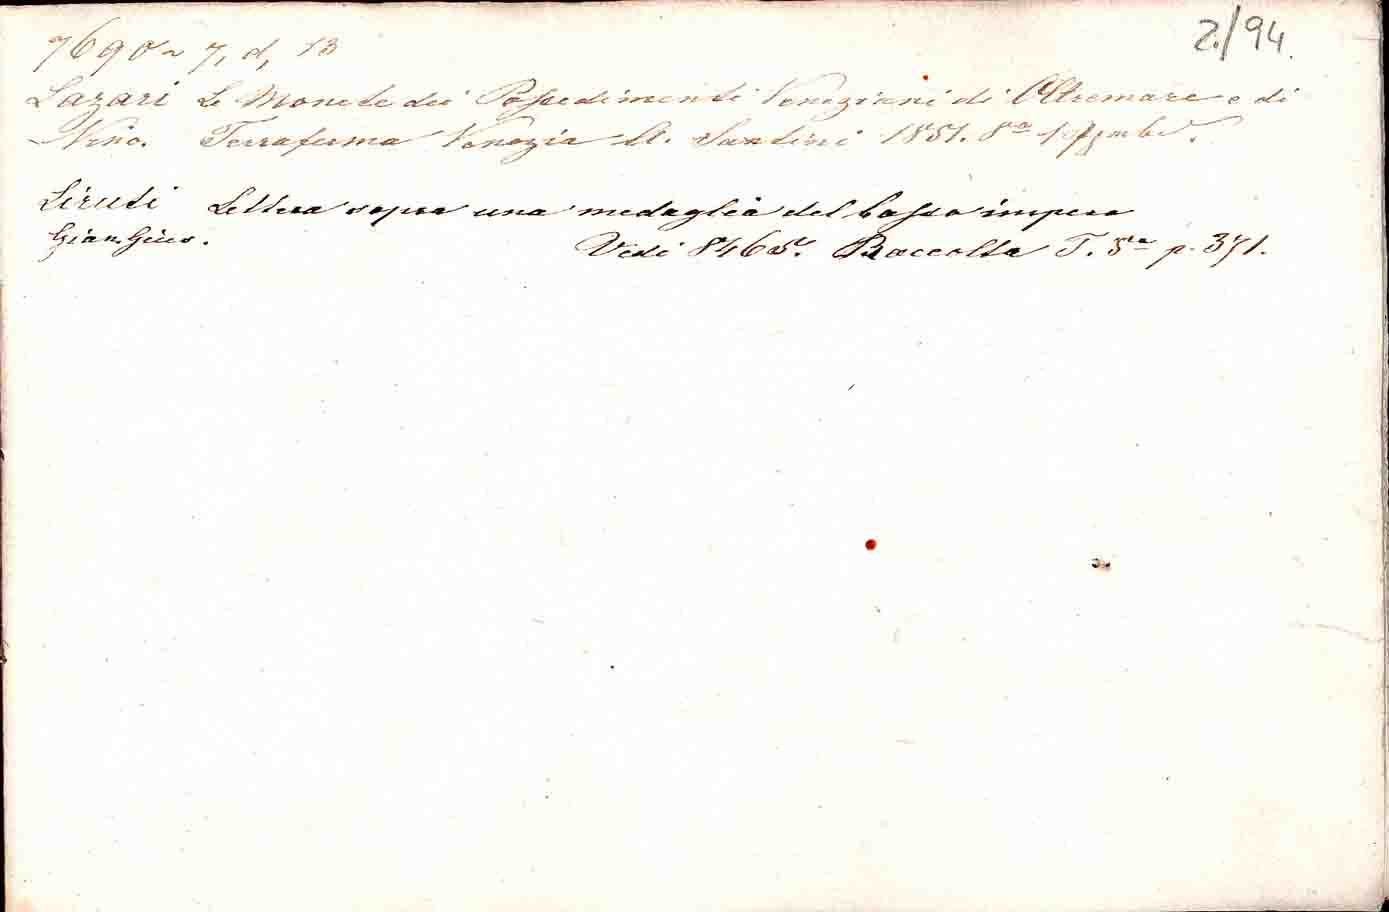 2./94.
7690~ 7, d, 13
Lazari Le Monete dei Possedimenti Veneziani di Oltremare e di
Vinc. Terraferma Venezia St. Santini 1851. 8°
Liruti Lettera sopra una medaglia del basso impero
Gian. Gius. Vedi 8465. Raccolta T. 5° p. 371.